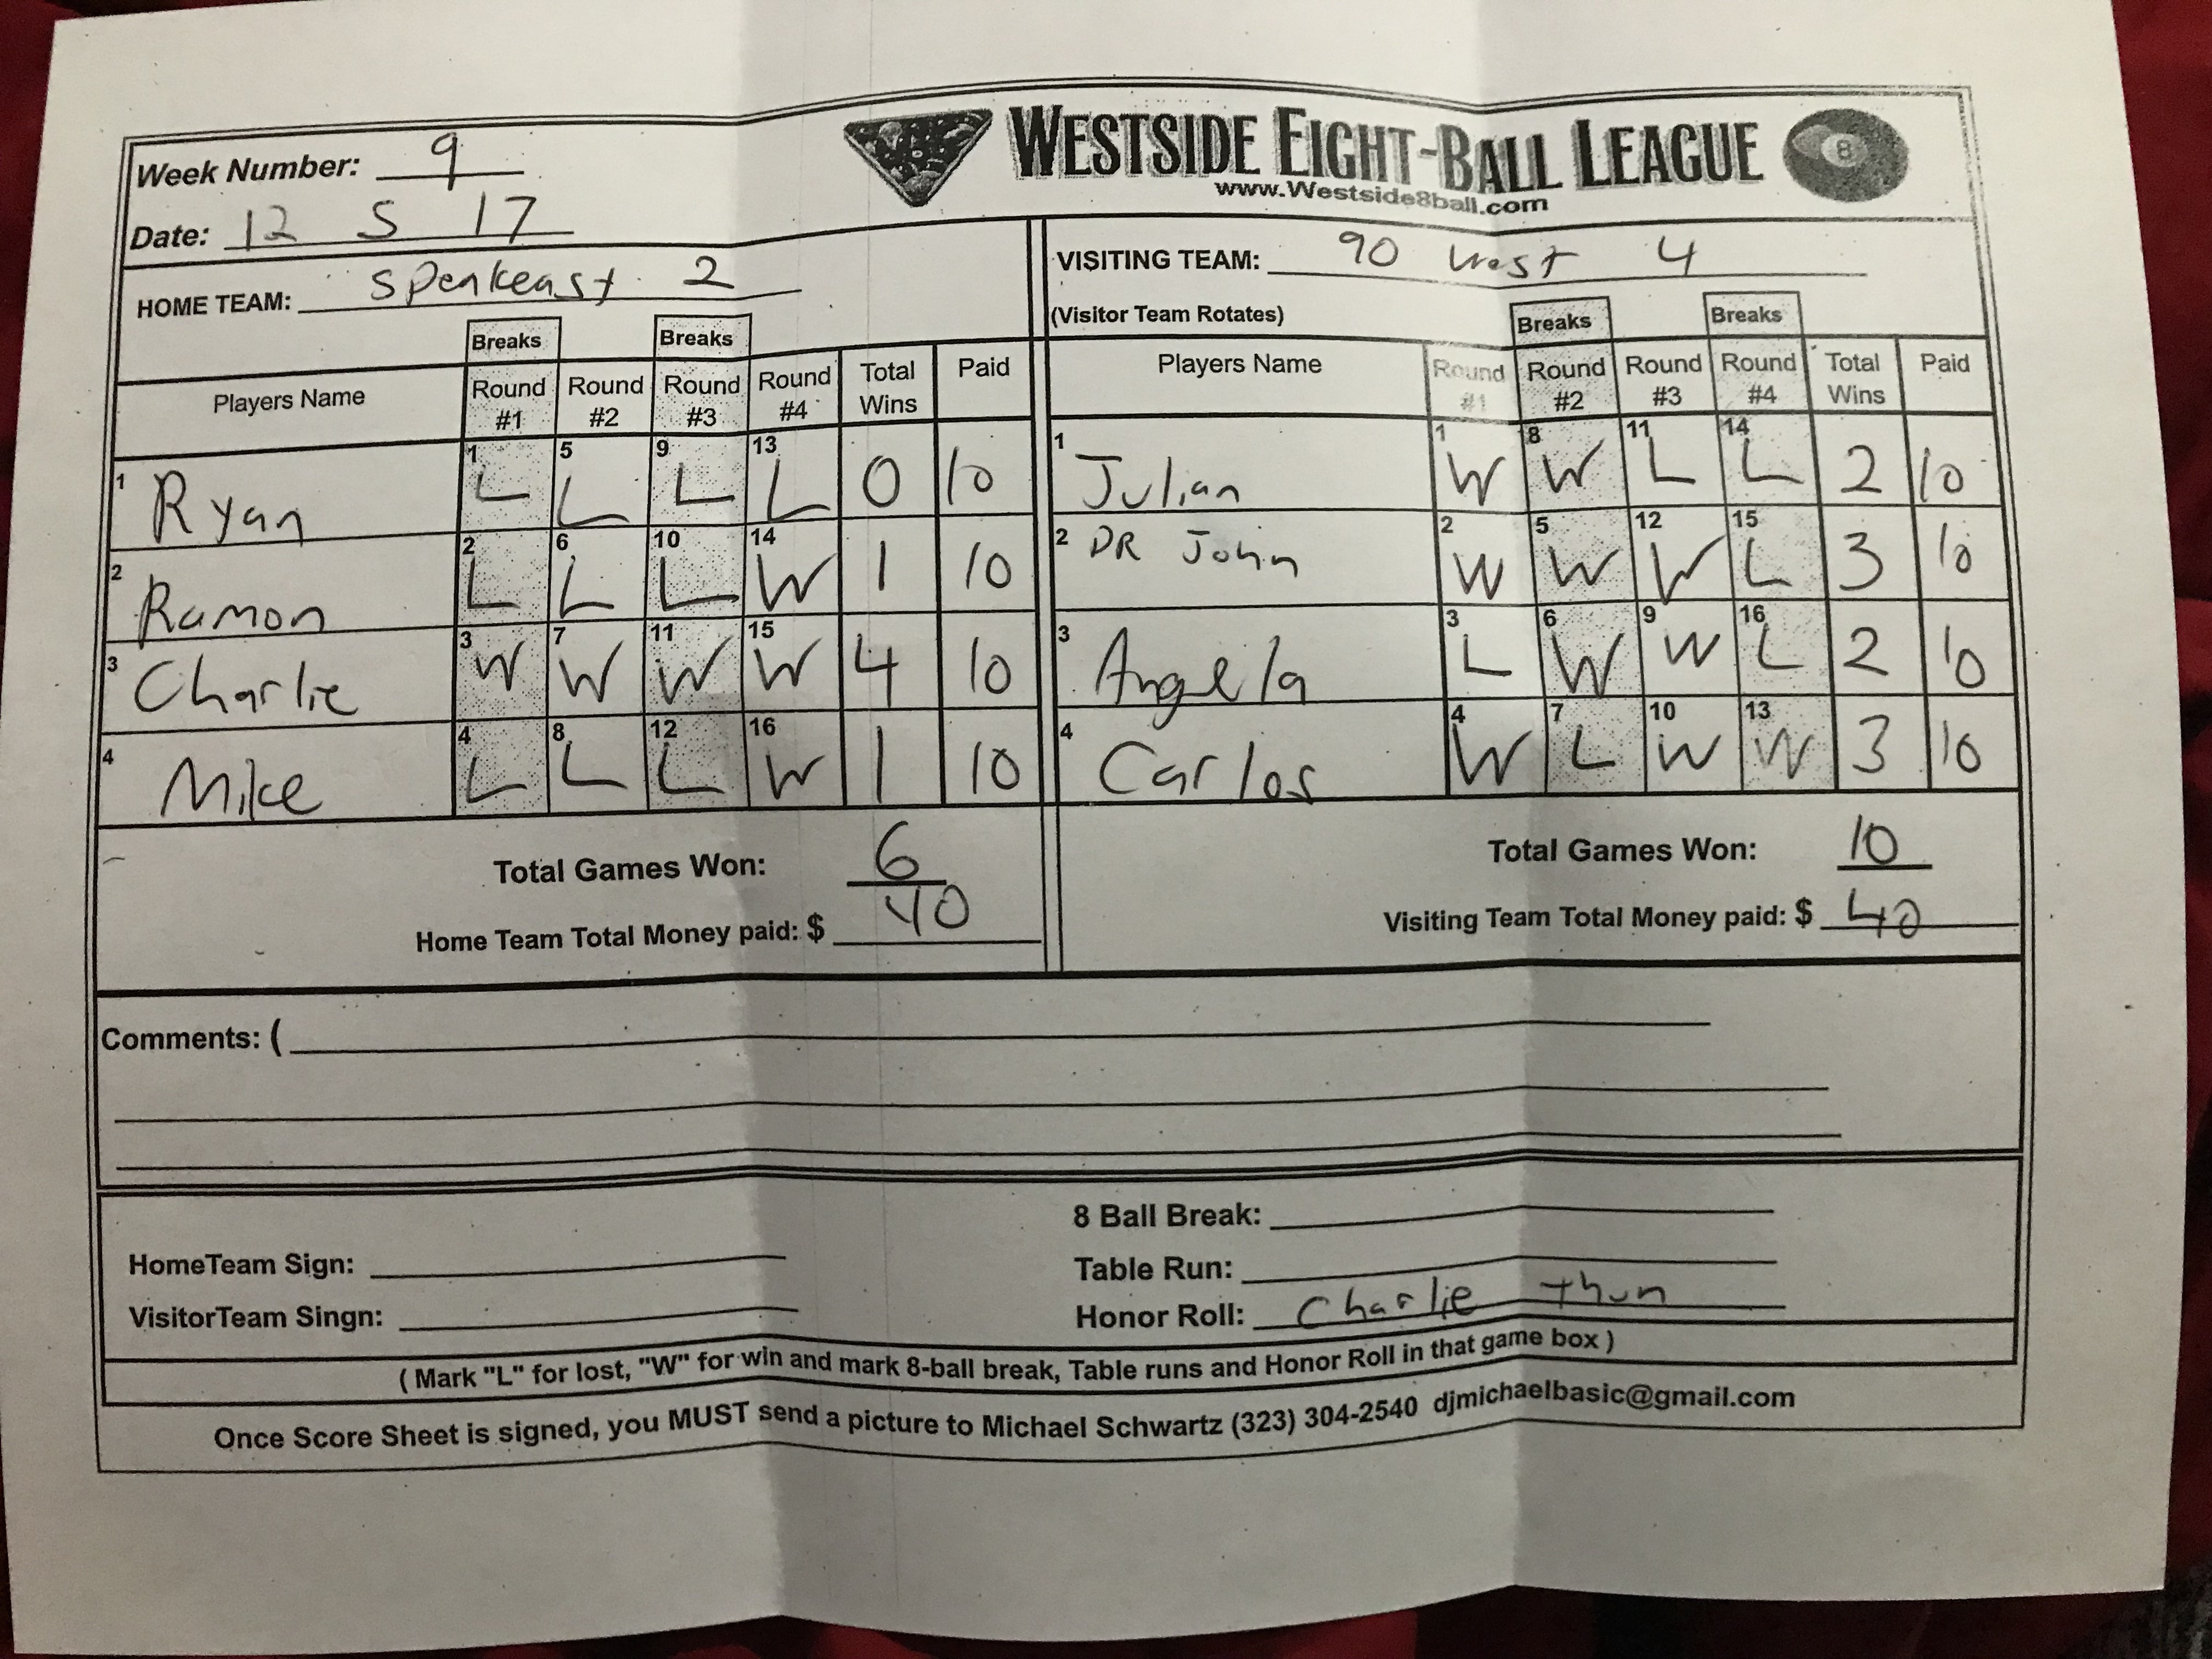 WESTSIDE EIGHT-BALL LEAGUE
8
www.Westside8ball.com
Week Number: 9
Date: 12 5 17
HOME TEAM: Speakeasy 2
VISITING TEAM: 90 West 4
(Visitor Team Rotates)
Breaks Breaks Breaks Breaks
Players Name Round #1 Round #2 Round #3 Round #4 Total Wins Paid
1 Ryan 1 L 5 L 9 L 13 L 0 10
2 Ramon 2 L 6 L 10 L 14 W 1 10
3 Charlie 3 W 7 W 11 W 15 W 4 10
4 Mike 4 L 8 L 12 L 16 W 1 10
Total Games Won: 6
Home Team Total Money paid: $ 40
Players Name Round #1 Round #2 Round #3 Round #4 Total Wins Paid
1 Julian 1 W 8 W 11 L 14 L 2 10
2 DR John 2 W 5 W 12 W 15 L 3 10
3 Angela 3 L 6 W 9 W 16 L 2 10
4 Carlos 4 W 7 L 10 W 13 W 3 10
Total Games Won: 10
Visiting Team Total Money paid: $ 40
Comments: (
HomeTeam Sign:
VisitorTeam Singn:
8 Ball Break:
Table Run:
Honor Roll: Charlie Thun
( Mark "L" for lost, "W" for win and mark 8-ball break, Table runs and Honor Roll in that game box )
Once Score Sheet is signed, you MUST send a picture to Michael Schwartz (323) 304-2540 djmichaelbasic@gmail.com